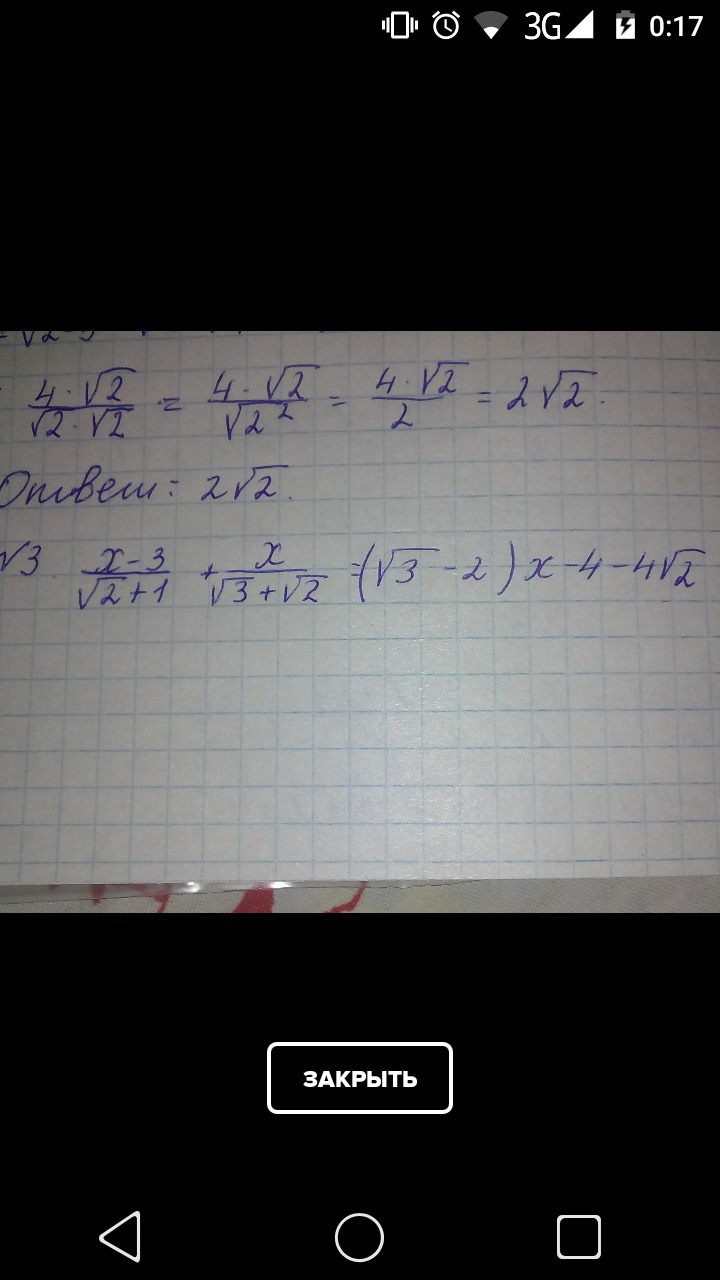 3G 0:17
4·√2/√2·√2 = 4·√2/√2² = 4·√2/2 = 2√2.
Ответ: 2√2.
√3 x-3/√2+1 + x/√3+√2 =(√3-2)x-4-4√2
ЗАКРЫТЬ